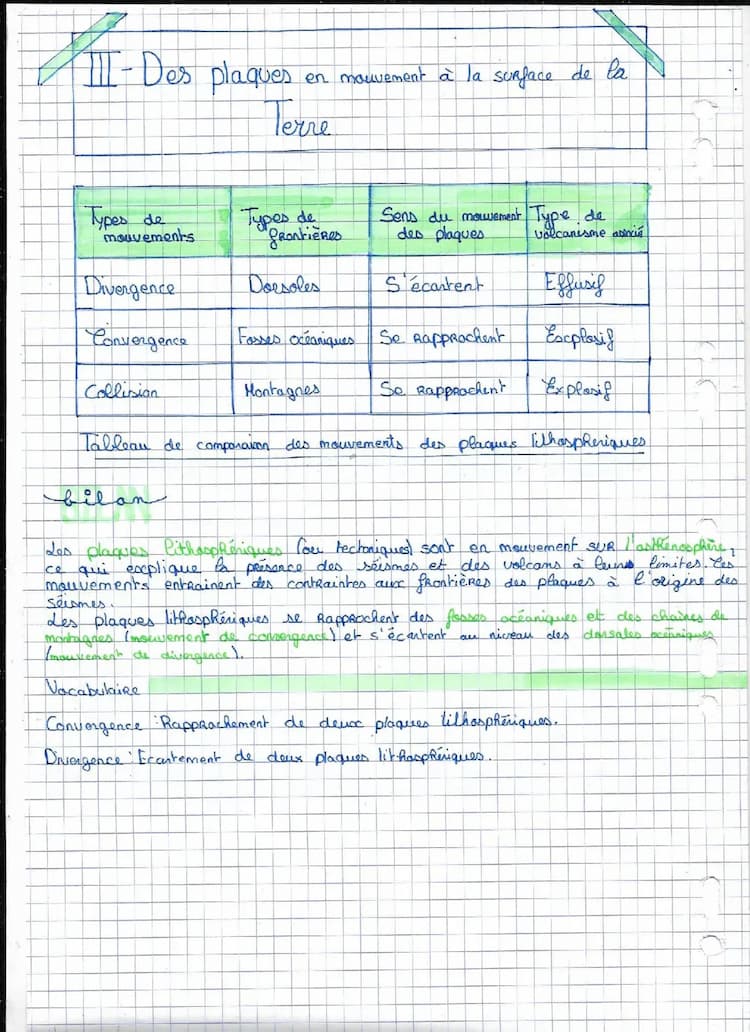 III - Des plaques en mouvement à la surface de la
Terre
Types de mouvements | Types de frontières | Sens du mouvement des plaques | Type de volcanisme associé
Divergence | Dorsales | S'écartent | Effusif
Convergence | Fosses océaniques | Se rapprochent | Explosif
Collision | Montagnes | Se rapprochent | Explosif
Tableau de comparaison des mouvements des plaques lithosphériques
bilan
Les plaques lithosphériques (ou techniques) sont en mouvement sur l'asthénosphère,
ce qui explique la présence des séismes et des volcans à leurs limites. Ces
mouvements entrainent des contraintes aux frontières des plaques à l'origine des
séismes.
Les plaques lithosphériques se rapprochent des fosses océaniques et des chaînes de
montagnes (mouvement de convergence) et s'écartent au niveau des dorsales océaniques
(mouvement de divergence).
Vocabulaire
Convergence : Rapprochement de deux plaques lithosphériques.
Divergence : Ecartement de deux plaques lithosphériques.